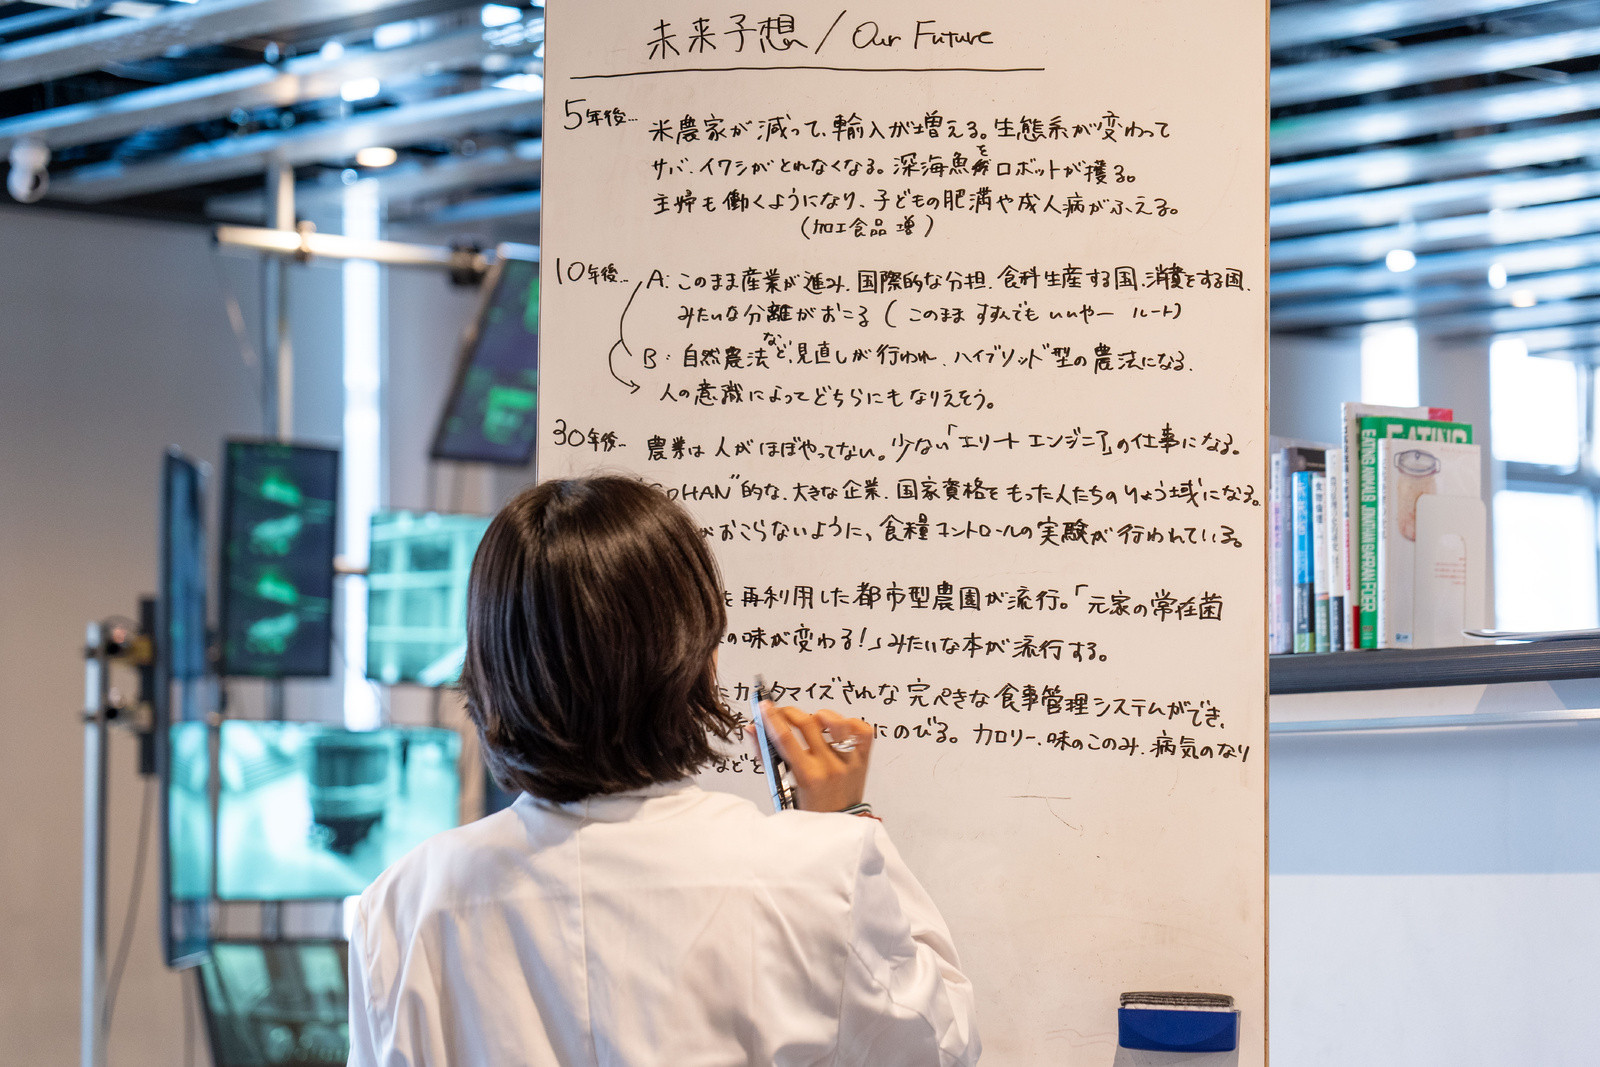 未来予想 / Our Future
5年後… 米農家が減って、輸入が増える。生態系が変わって
サバ、イワシがとれなくなる。深海魚をロボットが獲る。
主婦も働くようになり、子どもの肥満や成人病がふえる。
(加工食品 増)
10年後… A: このまま産業が進み、国際的な分担、食料生産する国、消費をする国、
みたいな分離がおこる ( このまま すすんでも いいやー ルート)
B: 自然農法など、見直しが行われ、ハイブリッド型の農法になる。
人の意識によってどちらにもなりえそう。
30年後… 農業は人がほぼやってない。少ない「エリート エンジニア」の仕事になる。
HAN"的な、大きな企業、国家資格をもった人たちのりょう域になる。
がおこらないように、食糧コントロールの実験が行われている。
を再利用した都市型農園が流行。「元家の常在菌
の味が変わる!」みたいな本が流行する。
にカスタマイズされた完ぺきな食事管理システムができ、
にのびる。カロリー、味のこのみ、病気のなり
などを
EATING
EATING ANIMALS JONATHAN SAFRAN FOER